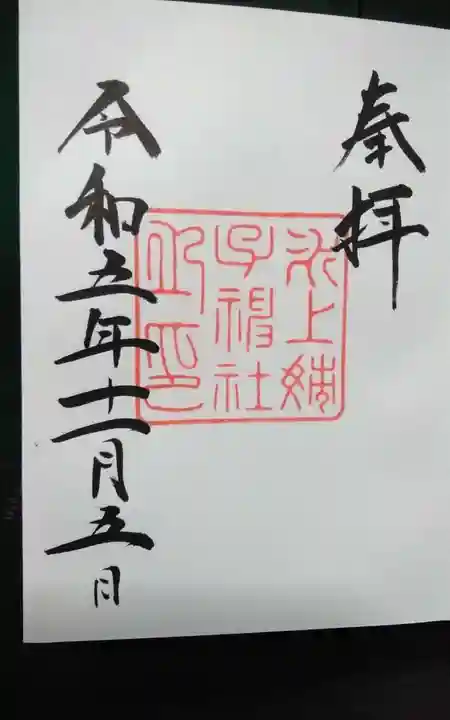 奉拝
氷上姉
子神社
印
令和五年十一月五日